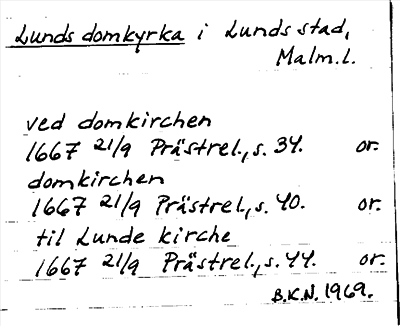 Lunds domkyrka i Lunds stad,
Malm.l.
ved domkirchen
1667 21/9 Prästrel., s. 34. or.
domkirchen
1667 21/9 Prästrel., s. 40. or.
til Lunde kirche
1667 21/9 Prästrel., s. 44. or.
B.K.N. 1969.